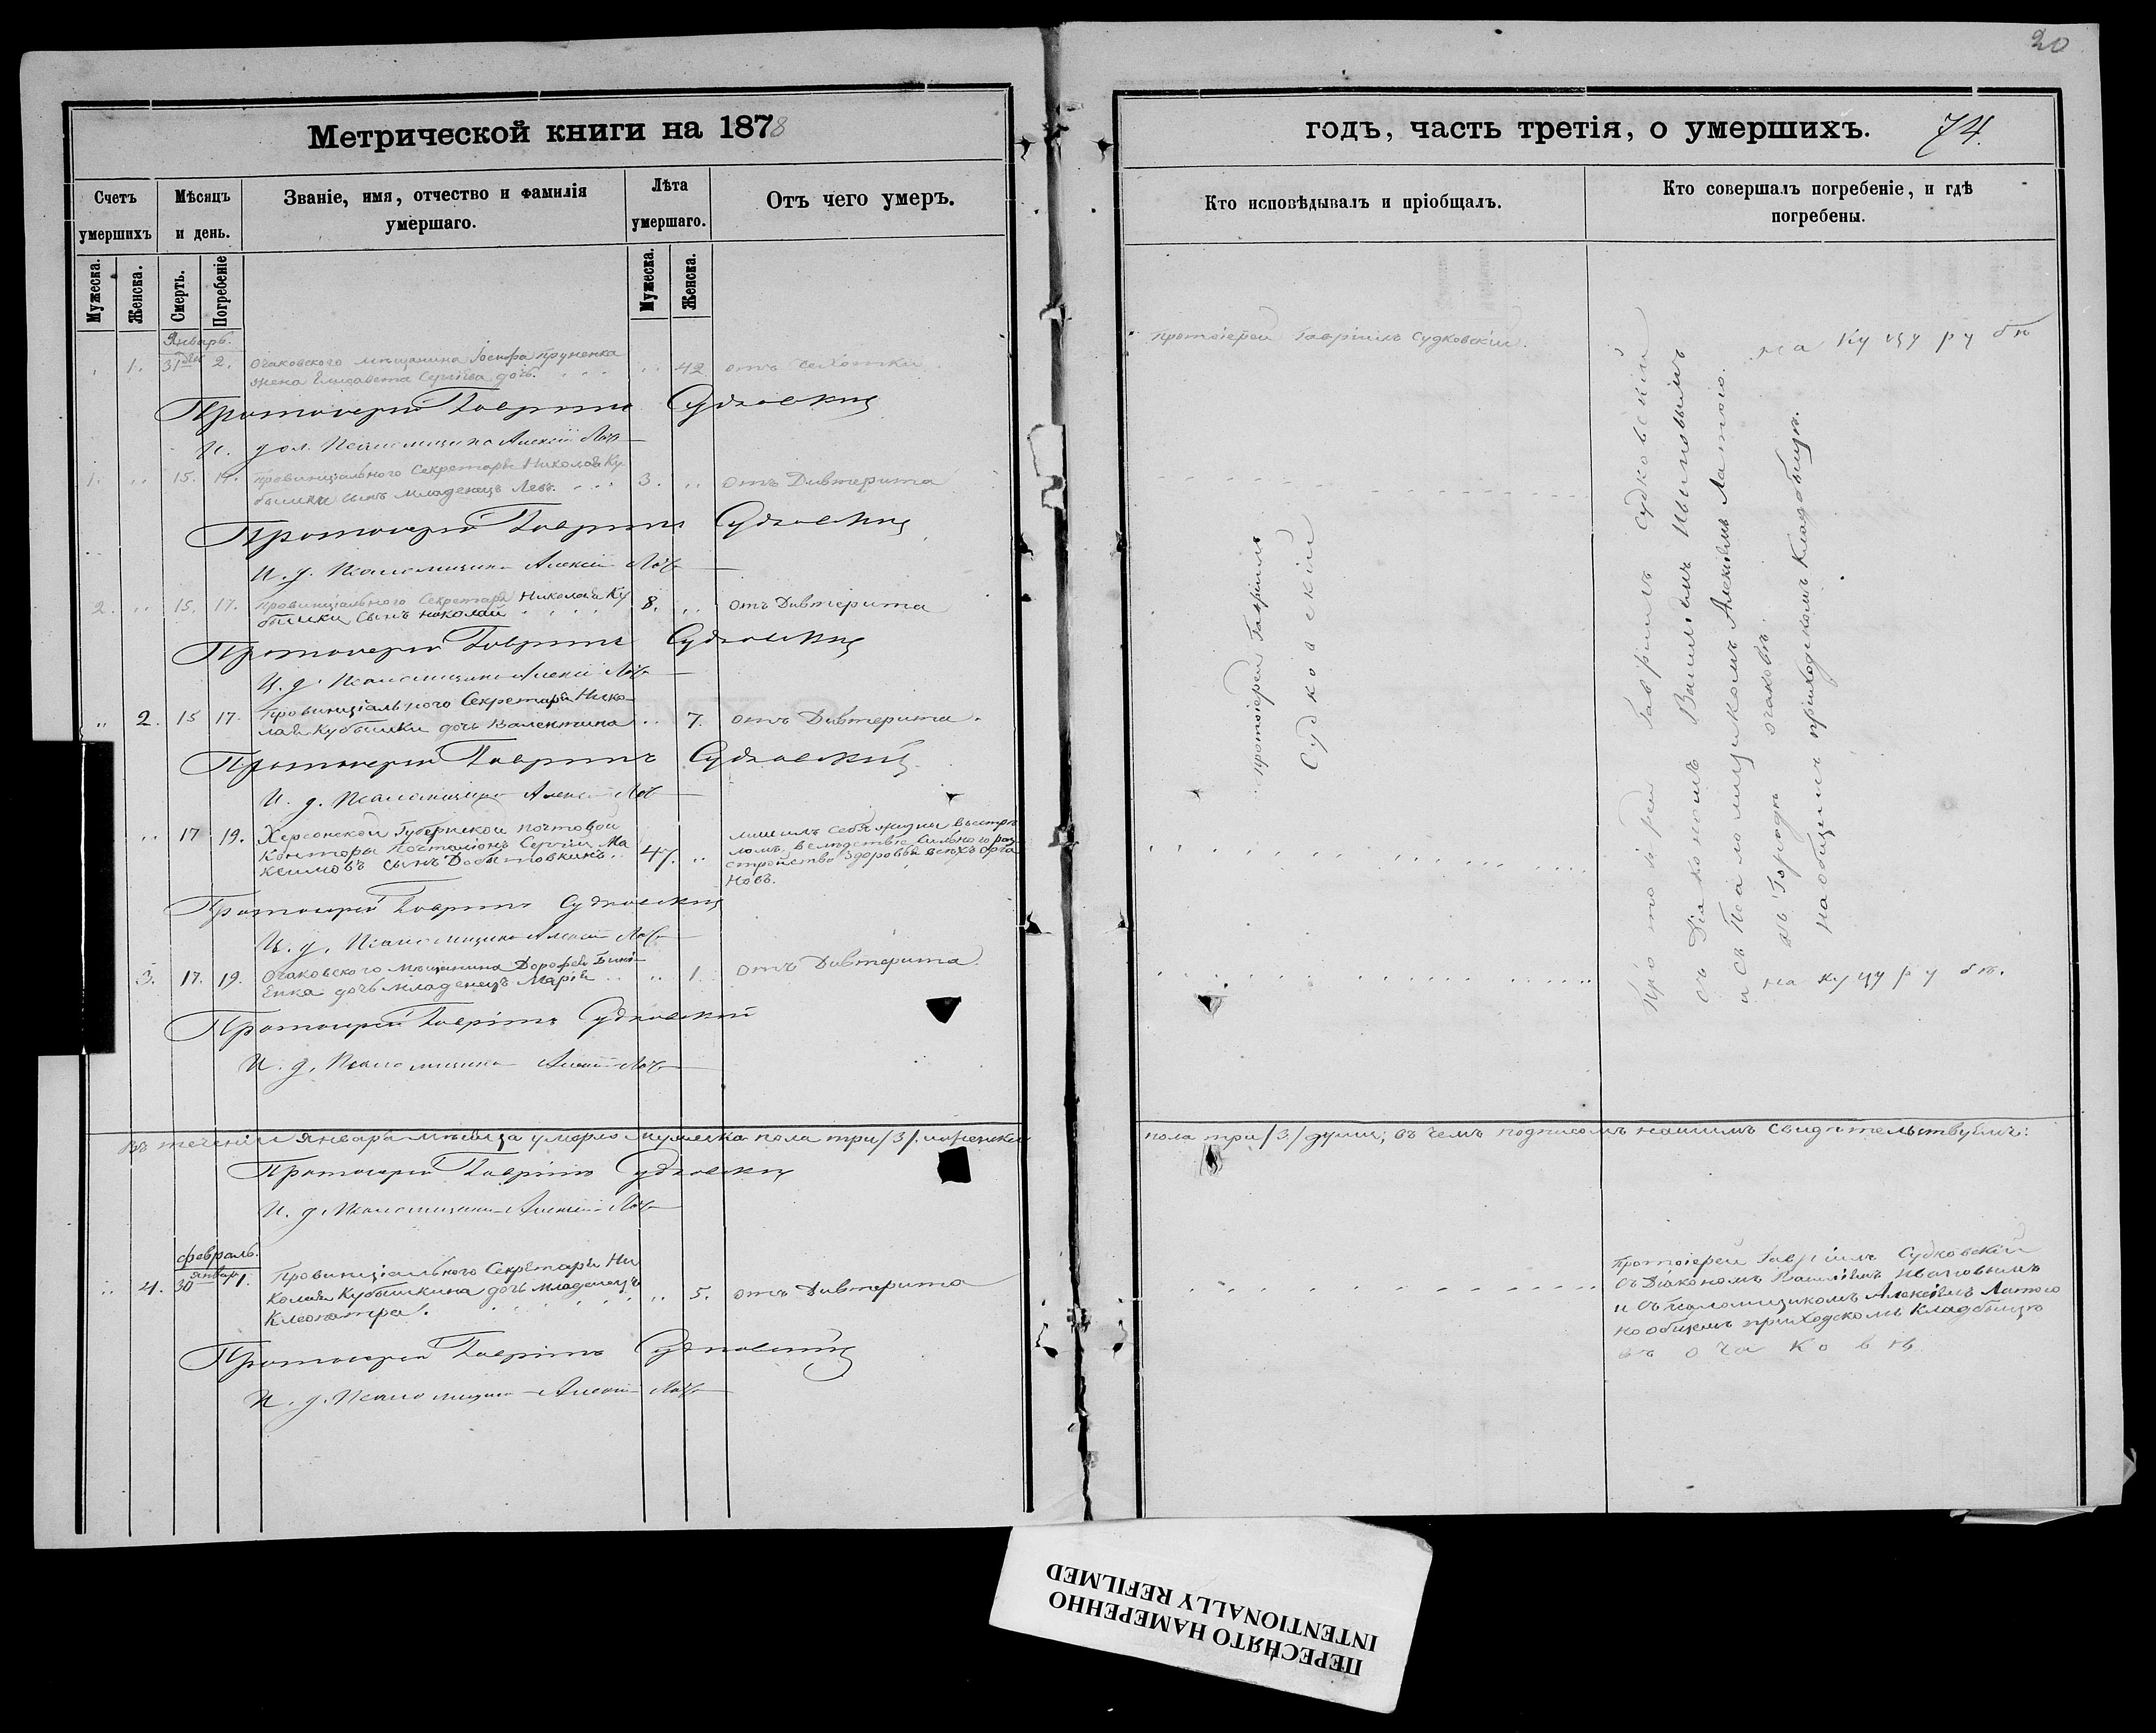 20
Метрической книги на 1878
годъ, часть третія, о умершихъ. 74.
Счетъ умершихъ
Мѣсяцъ и день.
Званіе, имя, отчество и фамилія умершаго.
Лѣта умершаго.
Отъ чего умеръ.
Кто исповѣдывалъ и пріобщалъ.
Кто совершалъ погребеніе, и гдѣ погребены.
Мужеска. Женска. Смерть. Погребеніе
Мужеска. Женска.
Январь.
1. 31 2. Очаковского мѣщанина Іосифа
жена Елисавета Сергіева дочь. 42 отъ чахотки
Протоіерей Гавріилъ Судковскій.
на Куцурубѣ
Протоіерей Гавріилъ Судковскій
И. дол. Псаломщика Алексій
1. 15. 17. Провинціального Секретаря Николая Ку
бышки сынъ младенецъ Левъ. 3. отъ Дивтерита
Протоіерей Гавріилъ Судковскій
И. д. Псаломщика Алексій
2. 15. 17. Провинціального Секретаря Николая Ку
бышки сынъ Николай 8. отъ Дивтерита
Протоіерей Гавріилъ Судковскій
И. д. Псаломщика Алексій
2. 15 17. Провинціального Секретаря Нико-
лая Кубышки дочь Валентина 7. отъ Дивтерита.
Протоіерей Гавріилъ Судковскій
И. д. Псаломщика Алексій
17 19. Херсонской Губернской почтовой
Конторы Почталіонъ Сергій Ма
ксимовъ сынъ 47. лишилъ себя жизни выстрѣ
ломъ, вслѣдствіе сильного раз
стройства здоровья всѣхъ орга
новъ.
Протоіерей Гавріилъ Судковскій
И. д. Псаломщика Алексій
3. 17. 19. Очаковского мѣщанина Дорофея
енка дочь младенецъ Марія 1. отъ Дивтерита
на Куцурубѣ.
Протоіерей Гавріилъ Судковскій
И. д. Псаломщика Алексій
протоіерей Гавріилъ
Судковскій
Протоіерей Гавріилъ Судковскій
съ Діакономъ Василіемъ Ивановымъ
и съ Псаломщикомъ Алексіемъ
въ Городѣ Очаковѣ.
на общемъ приходскомъ Кладбищѣ.
Въ теченіи Января мѣсяца умерло мужеска пола три /3/. и женска
пола три /3/ души; въ чемъ подписомъ нашимъ свидѣтельствуемъ:
Протоіерей Гавріилъ Судковскій
И. д. Псаломщика Алексій
февраль.
4. 30 января 1. Провинціального Секретаря Ни
колая Кубышкина дочь младенецъ
Клеопатра. 5. отъ Дивтерита
Протоіерей Гавріилъ Судковскій
съ Діакономъ Василіемъ Ивановымъ
и съ Псаломщикомъ Алексіемъ
на общемъ приходскомъ Кладбищѣ
въ Очаковѣ.
Протоіерей Гавріилъ Судковскій
И. д. Псаломщика Алексій
ПЕРЕСНЯТО НАМЕРЕННО
INTENTIONALLY REFILMED